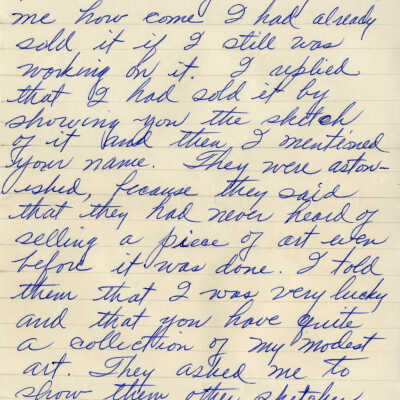 me how come I had already
sold it if I still was
working on it. I replied
that I had sold it by
showing you the sketch
of it and then I mentioned
your name. They were aston-
ished, because they said
that they had never heard of
selling a piece of art even
before it was done. I told
them that I was very lucky
and that you have quite
a collection of my modest
art. They asked me to
show them other sketches